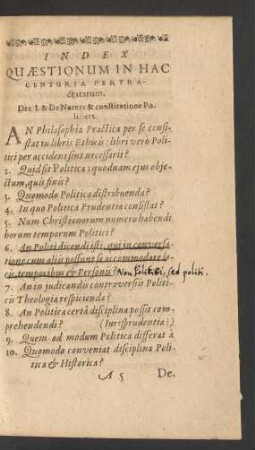 INDEX
QUÆSTIONUM IN HAC
CENTURIA PERTRA-
ctatarum.
Dec. I. & De Natura & constitutione Po-
litices.
AN Philosophia Practica per se consi-
stat in libris Ethicis: libri verò Poli-
tici per accidens sint necessarii?
2. Quid sit Politica: quodnam ejus obje-
ctum, quis finis?
3. Quomodo Politica distribuenda?
4. In quo Politica Prudentia consistat?
5. Num Christianorum numero habendi
horum temporum Politici?
6. An Politi dicendi isti, qui in conversa-
tione cum aliis possunt se accommodare lo-
cis, temporibus & Personis? Non Politici, sed politi.
7. An in judicandis controversiis Politi-
cis Theologia respicienda?
8. An Politica certâ disciplina possit com-
prehendendi? (Jurisprudentia:)
9. Quem ad modum Politica differat à
10. Quomodo conveniat disciplina Poli-
tica & Historica?
A 5 De.